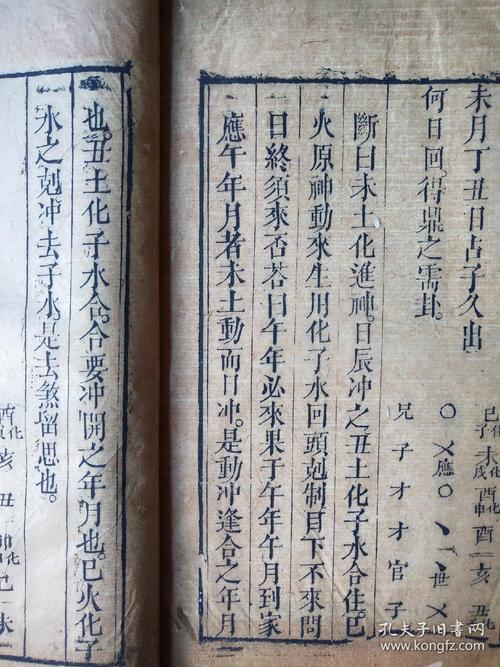 未月丁丑日占子久出
何日回。得鼎之需卦。
○ 乂應○ 丶丶世乂
兄子才才官子
斷曰未土化進神。日辰冲之丑土化子水合住巳
火原神動來生用化子水回頭剋制目下不來問
日終須來否答曰午年必來果于午年午月到家
應午年月者未土動而日冲。是動冲逢合之年月
也。丑土化子水合。合要冲開之年月也。巳火化子
水之剋冲去子水。是去煞留思也。
孔夫子旧书网
www.kongfz.com